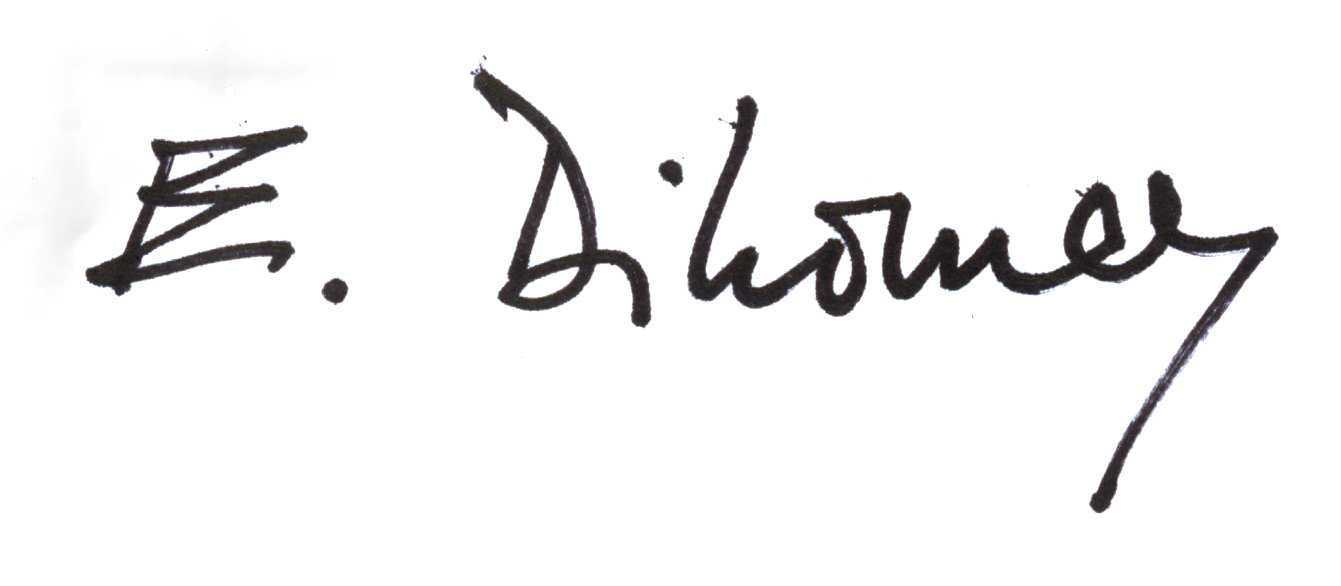 E. Dikomey